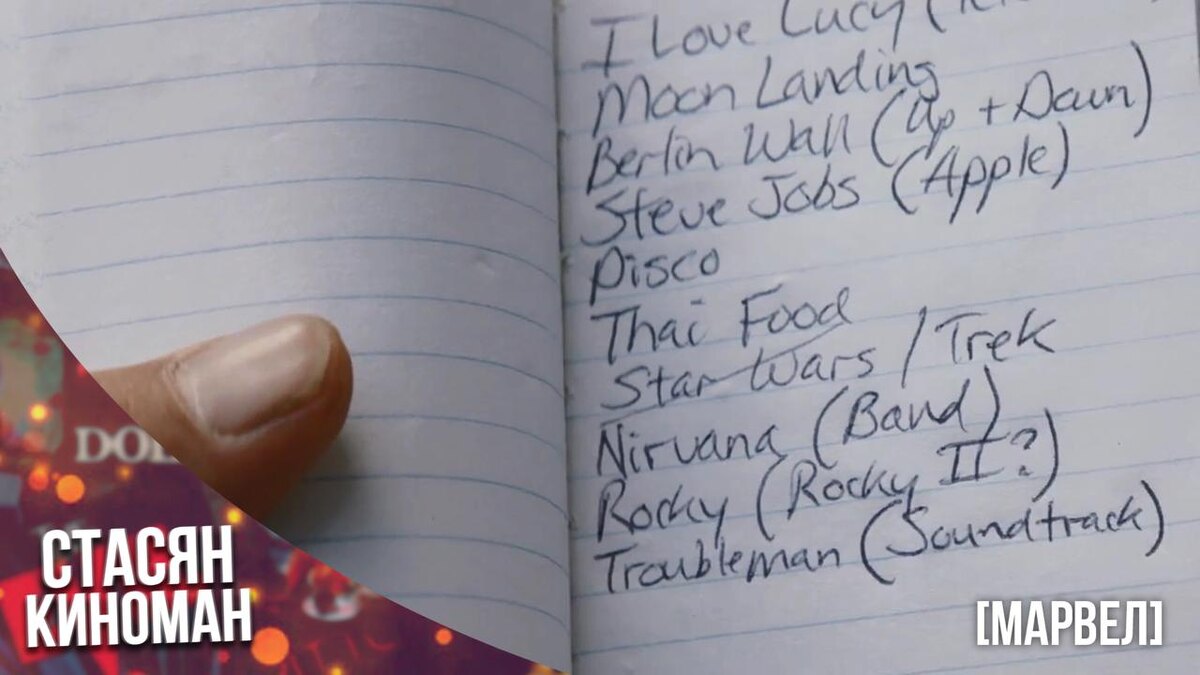 I Love Lucy (
Moon Landing
Berlin Wall (Up + Down)
Steve Jobs (Apple)
Disco
Thai Food
Star Wars / Trek
Nirvana (Band)
Rocky (Rocky II?)
Troubleman (Soundtrack)
СТАСЯН
КИНОМАН
[МАРВЕЛ]